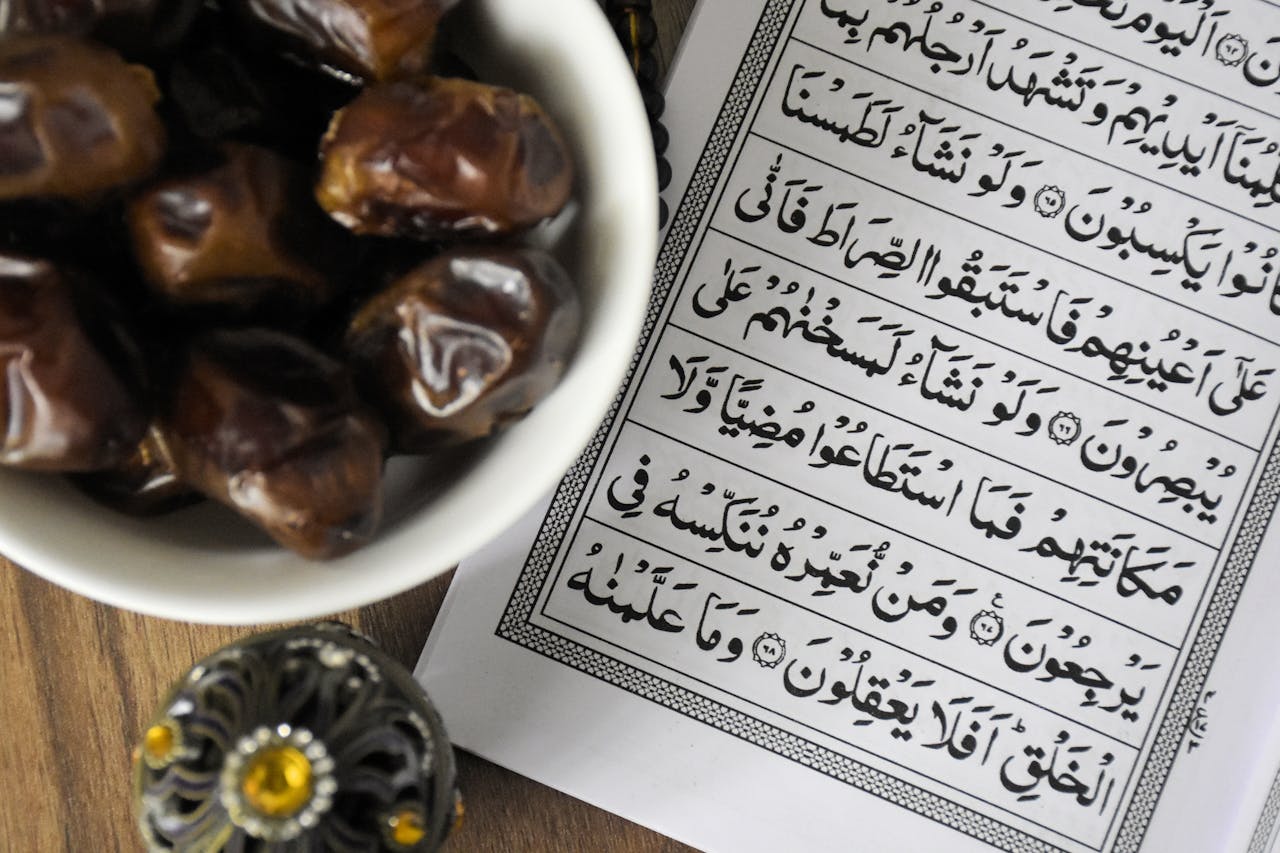 اَلْيَوْمَ ۝٦٤
اَيْدِيْهِمْ وَتَشْهَدُ اَرْجُلُهُمْ بِمَا
يَكْسِبُوْنَ ۝٦٥ وَلَوْ نَشَآءُ لَطَمَسْنَا
عَلٰٓى اَعْيُنِهِمْ فَاسْتَبَقُوا الصِّرَاطَ فَاَنّٰى
يُبْصِرُوْنَ ۝٦٦ وَلَوْ نَشَآءُ لَمَسَخْنٰهُمْ عَلٰى
مَكَانَتِهِمْ فَمَا اسْتَطَاعُوْا مُضِيًّا وَّلَا
يَرْجِعُوْنَ ۝٦٧ ع وَمَنْ نُّعَمِّرْهُ نُنَكِّسْهُ فِي
الْخَلْقِ ؕ اَفَلَا يَعْقِلُوْنَ ۝٦٨ وَمَا عَلَّمْنٰهُ